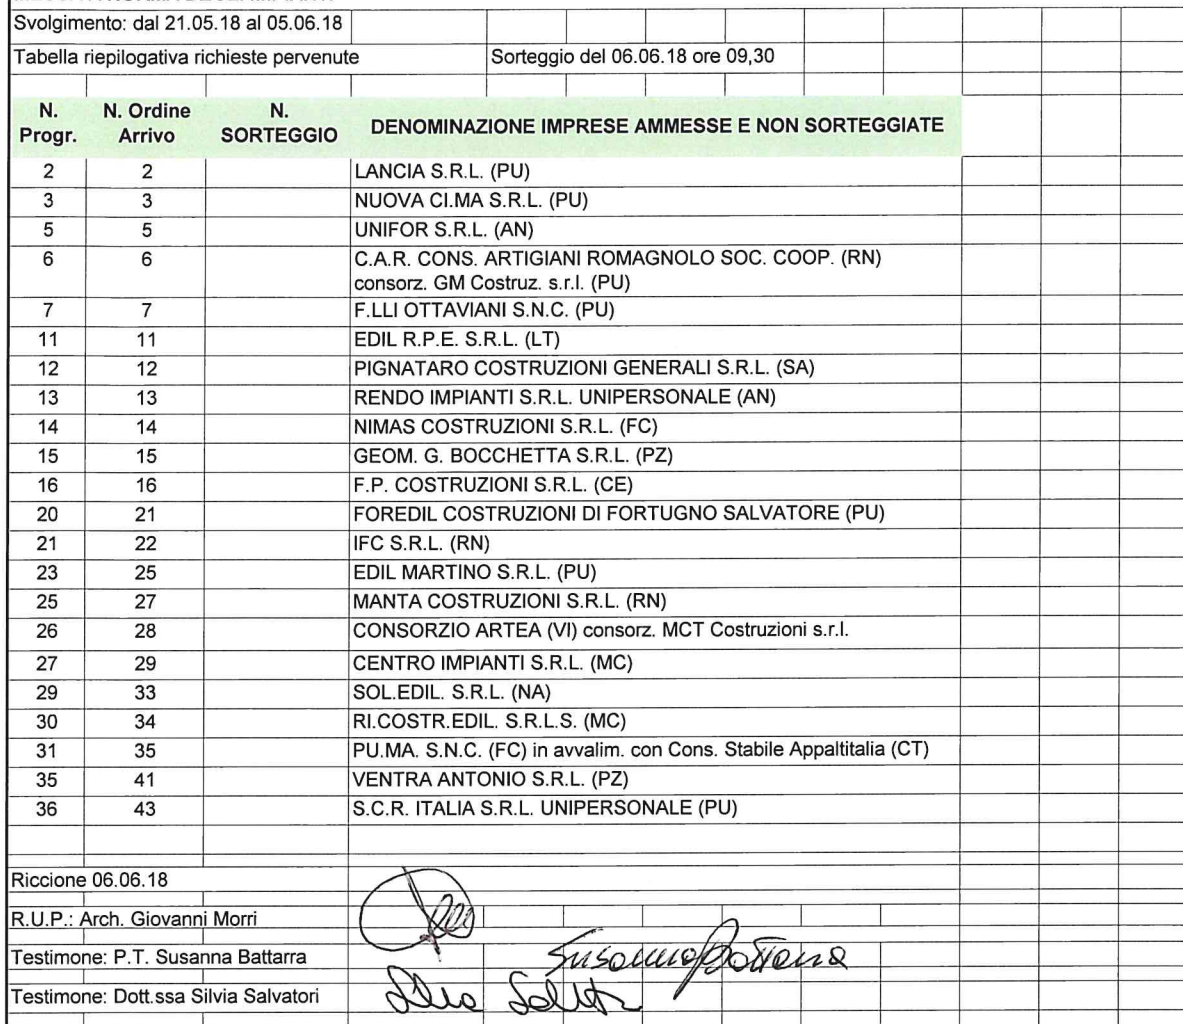 Svolgimento: dal 21.05.18 al 05.06.18
Tabella riepilogativa richieste pervenute Sorteggio del 06.06.18 ore 09,30
N. Progr. N. Ordine Arrivo N. SORTEGGIO DENOMINAZIONE IMPRESE AMMESSE E NON SORTEGGIATE
2 2 LANCIA S.R.L. (PU)
3 3 NUOVA CI.MA S.R.L. (PU)
5 5 UNIFOR S.R.L. (AN)
6 6 C.A.R. CONS. ARTIGIANI ROMAGNOLO SOC. COOP. (RN)
consorz. GM Costruz. s.r.l. (PU)
7 7 F.LLI OTTAVIANI S.N.C. (PU)
11 11 EDIL R.P.E. S.R.L. (LT)
12 12 PIGNATARO COSTRUZIONI GENERALI S.R.L. (SA)
13 13 RENDO IMPIANTI S.R.L. UNIPERSONALE (AN)
14 14 NIMAS COSTRUZIONI S.R.L. (FC)
15 15 GEOM. G. BOCCHETTA S.R.L. (PZ)
16 16 F.P. COSTRUZIONI S.R.L. (CE)
20 21 FOREDIL COSTRUZIONI DI FORTUGNO SALVATORE (PU)
21 22 IFC S.R.L. (RN)
23 25 EDIL MARTINO S.R.L. (PU)
25 27 MANTA COSTRUZIONI S.R.L. (RN)
26 28 CONSORZIO ARTEA (VI) consorz. MCT Costruzioni s.r.l.
27 29 CENTRO IMPIANTI S.R.L. (MC)
29 33 SOL.EDIL. S.R.L. (NA)
30 34 RI.COSTR.EDIL. S.R.L.S. (MC)
31 35 PU.MA. S.N.C. (FC) in avvalim. con Cons. Stabile Appaltitalia (CT)
35 41 VENTRA ANTONIO S.R.L. (PZ)
36 43 S.C.R. ITALIA S.R.L. UNIPERSONALE (PU)
Riccione 06.06.18
R.U.P.: Arch. Giovanni Morri
Testimone: P.T. Susanna Battarra Susanna Battarra
Testimone: Dott.ssa Silvia Salvatori